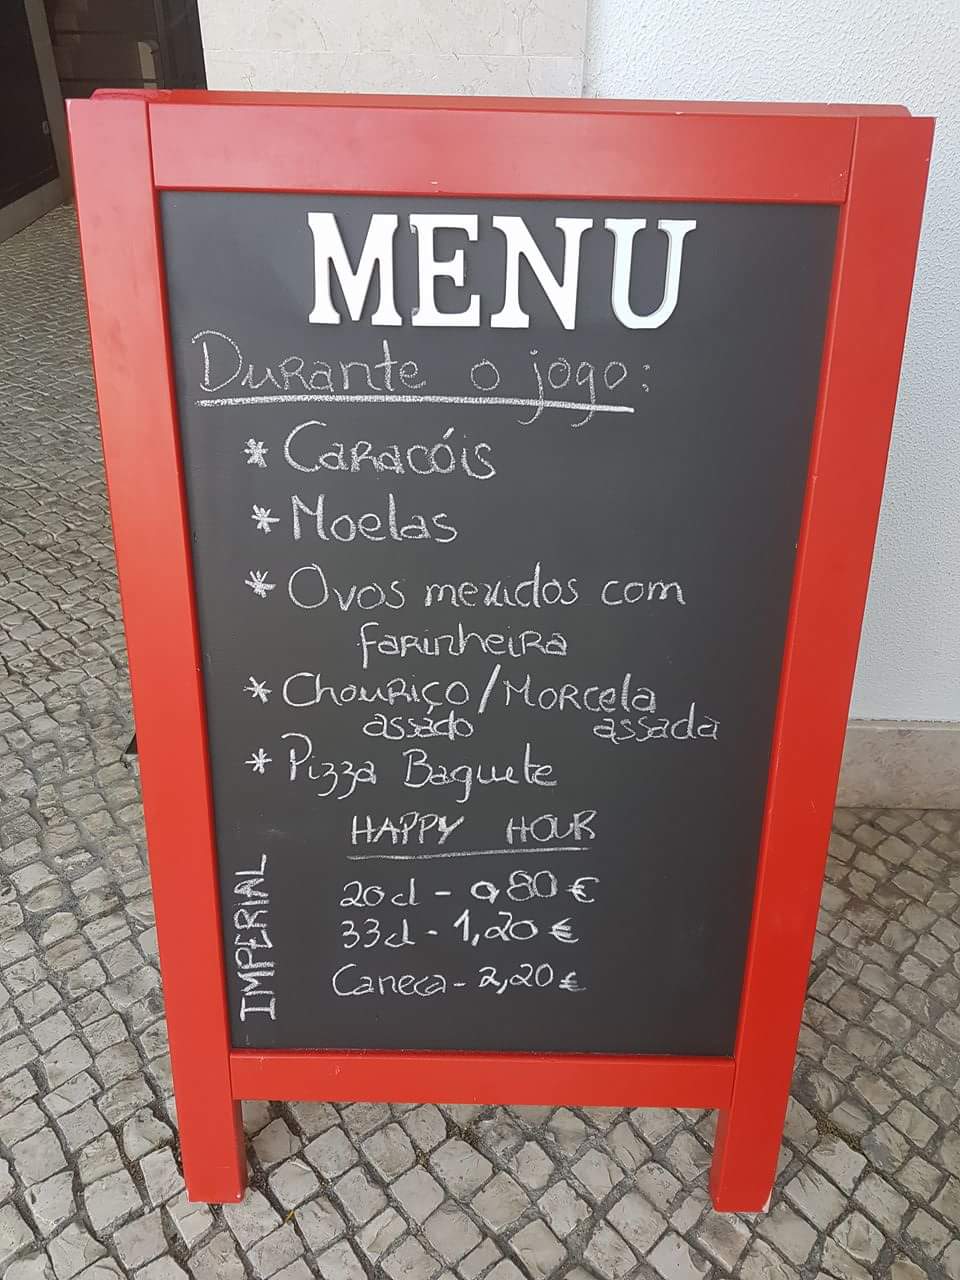 MENU
Durante o jogo:
* Caracóis
* Moelas
* Ovos mexidos com
farinheira
* Chouriço/Morcela
assado assada
* Pizza Baguete
HAPPY HOUR
IMPERIAL
20cl - 0,80 €
33cl - 1,20 €
Caneca - 2,20 €